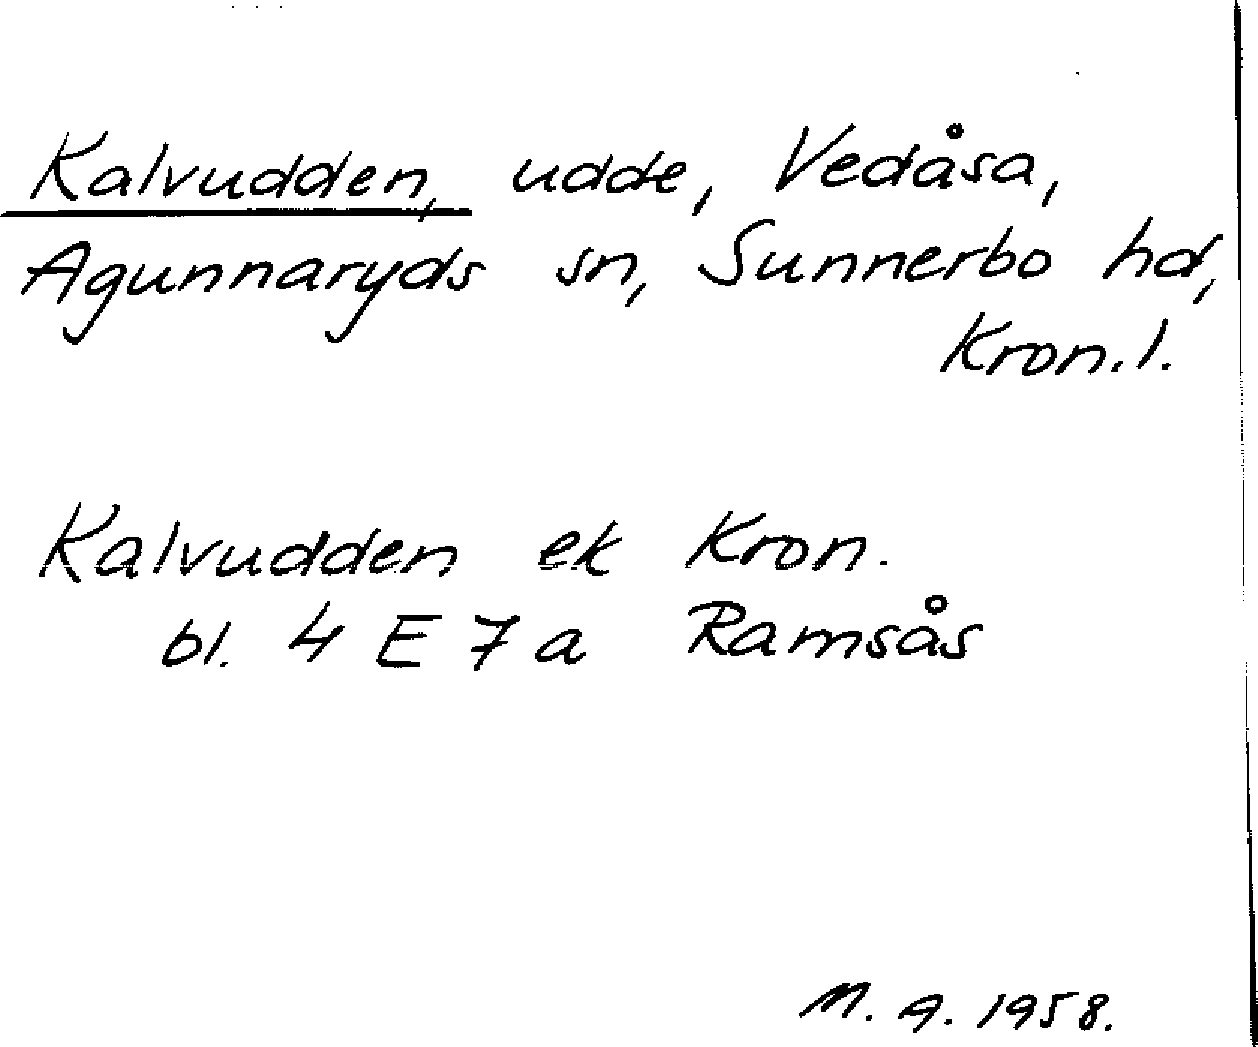 Kalvudden, udde, Vedåsa,
Agunnaryds sn, Sunnerbo hd,
Kron. l.
Kalvudden ek Kron.
bl. 4 E 7 a Ramsås
M. A. 1958.